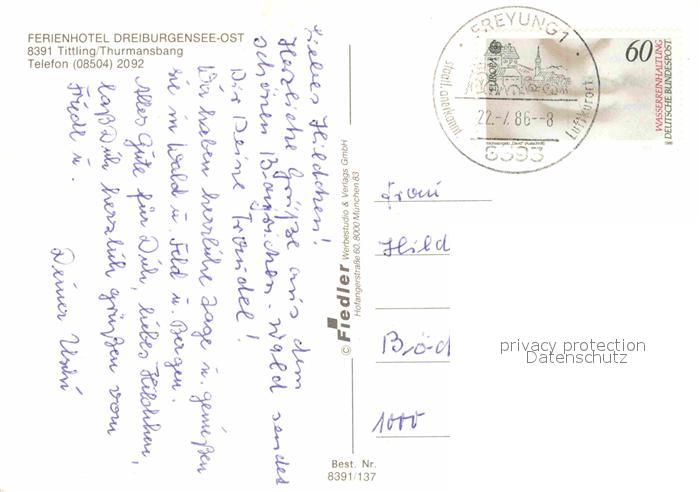 FERIENHOTEL DREIBURGENSEE-OST
8391 Tittling/Thurmansbang
Telefon (08504) 2092
Liebes Hildchen!
Herzliche Grüße aus dem
schönen Bayrischen-Wald sendet
Dir Deine Traudel!
Wir haben herrliche Tage u. genießen
sie in Wald u. Feld u. Bergen.
Alles Gute für Dich, liebes Hildchen,
laß Dich herzlich grüßen von
Friedl u.
Deiner Uschi
© Fiedler Werbestudio & Verlags GmbH
Hofangerstraße 60, 8000 München 83
Best. Nr.
8391/137
FREYUNG 1
staatl. anerkannt
Luftkurort
22.-7.86-8
8393
EUROPA
60
WASSERREINHALTUNG
DEUTSCHE BUNDESPOST
Frau
Hild
1000
privacy protection
Datenschutz